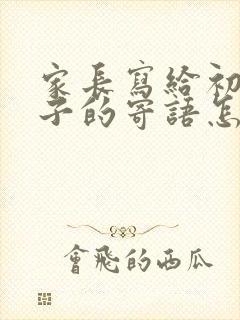 家長寫給初
子的寄語怎
會飛的西瓜